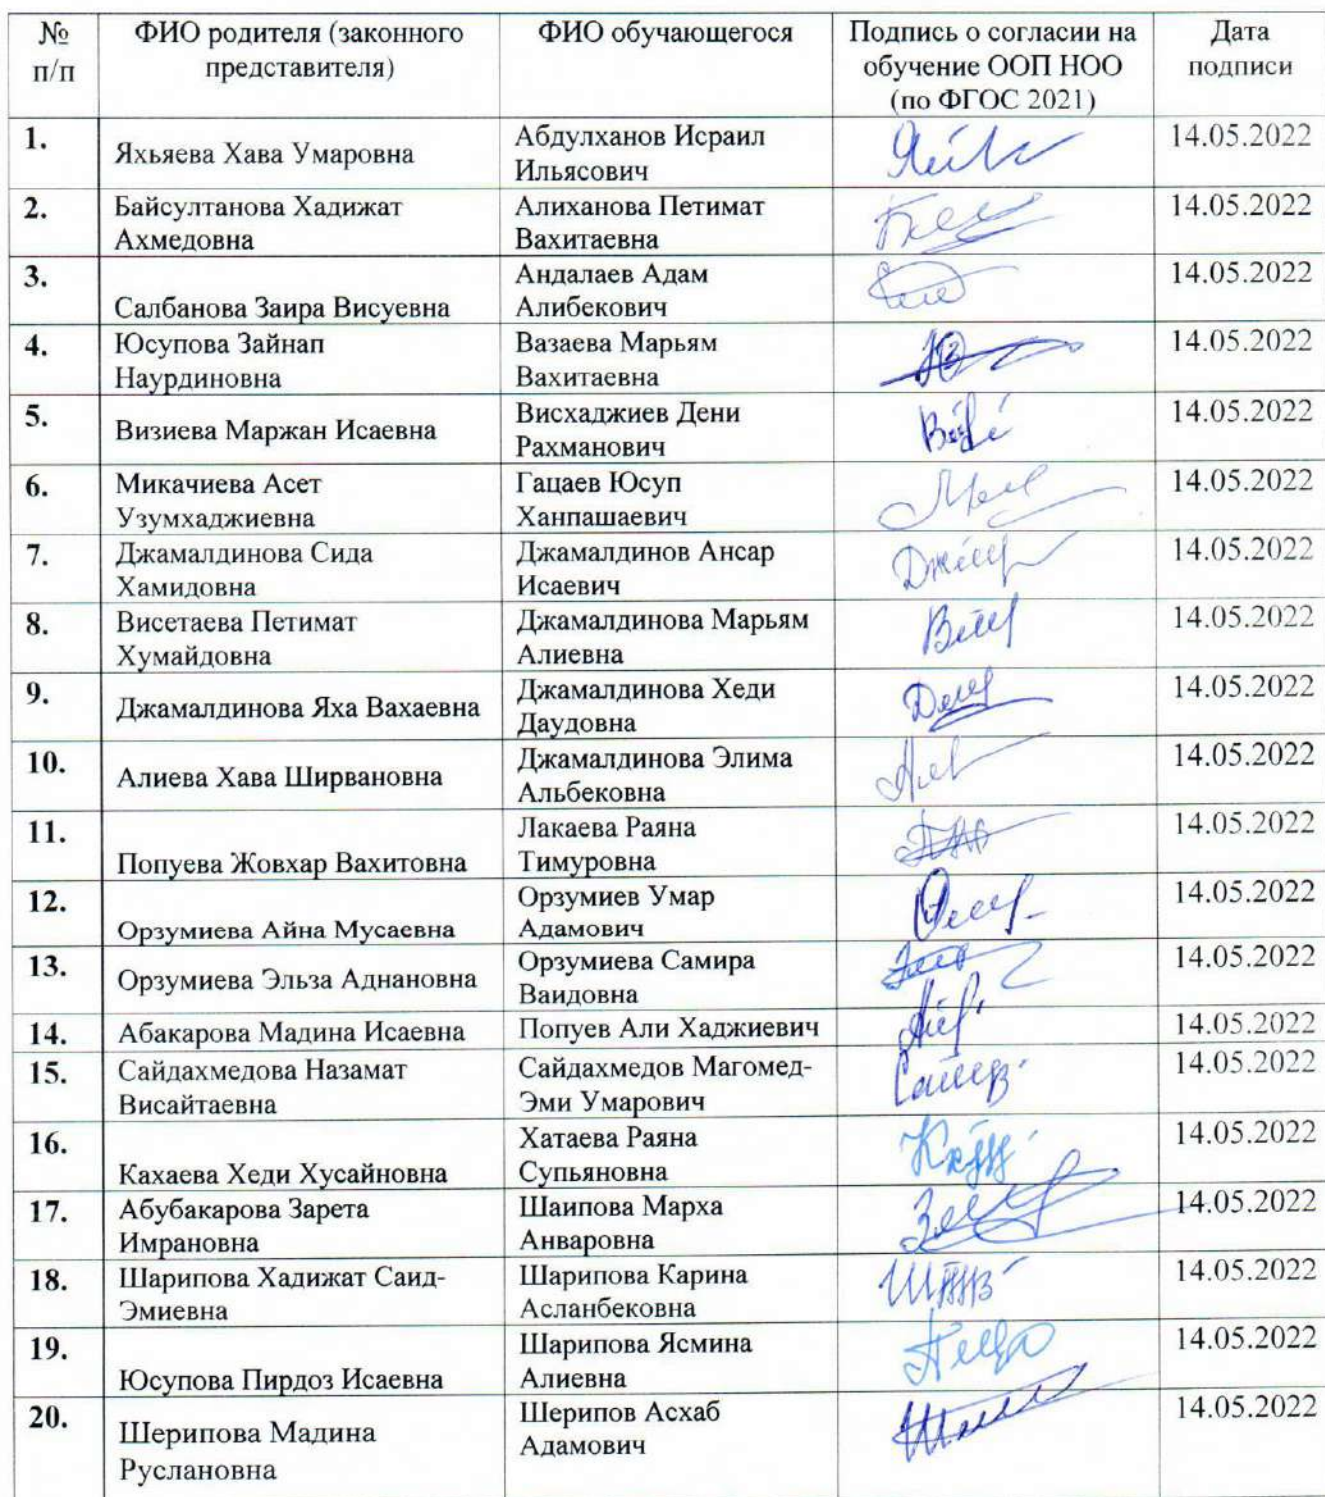 № п/п
ФИО родителя (законного представителя)
ФИО обучающегося
Подпись о согласии на обучение ООП НОО (по ФГОС 2021)
Дата подписи
1.
Яхьяева Хава Умаровна
Абдулханов Исраил
Ильясович
14.05.2022
2.
Байсултанова Хадижат
Ахмедовна
Алиханова Петимат
Вахитаевна
14.05.2022
3.
Салбанова Заира Висуевна
Андалаев Адам
Алибекович
14.05.2022
4.
Юсупова Зайнап
Наурдиновна
Вазаева Марьям
Вахитаевна
14.05.2022
5.
Визиева Маржан Исаевна
Висхаджиев Дени
Рахманович
14.05.2022
6.
Микачиева Асет
Узумхаджиевна
Гацаев Юсуп
Ханпашаевич
14.05.2022
7.
Джамалдинова Сида
Хамидовна
Джамалдинов Ансар
Исаевич
14.05.2022
8.
Висетаева Петимат
Хумайдовна
Джамалдинова Марьям
Алиевна
14.05.2022
9.
Джамалдинова Яха Вахаевна
Джамалдинова Хеди
Даудовна
14.05.2022
10.
Алиева Хава Ширвановна
Джамалдинова Элима
Альбековна
14.05.2022
11.
Попуева Жовхар Вахитовна
Лакаева Раяна
Тимуровна
14.05.2022
12.
Орзумиева Айна Мусаевна
Орзумиев Умар
Адамович
14.05.2022
13.
Орзумиева Эльза Аднановна
Орзумиева Самира
Ваидовна
14.05.2022
14.
Абакарова Мадина Исаевна
Попуев Али Хаджиевич
14.05.2022
15.
Сайдахмедова Назамат
Висайтаевна
Сайдахмедов Магомед-
Эми Умарович
14.05.2022
16.
Кахаева Хеди Хусайновна
Хатаева Раяна
Супьяновна
14.05.2022
17.
Абубакарова Зарета
Имрановна
Шаипова Марха
Анваровна
14.05.2022
18.
Шарипова Хадижат Саид-
Эмиевна
Шарипова Карина
Асланбековна
14.05.2022
19.
Юсупова Пирдоз Исаевна
Шарипова Ясмина
Алиевна
14.05.2022
20.
Шерипова Мадина
Руслановна
Шерипов Асхаб
Адамович
14.05.2022